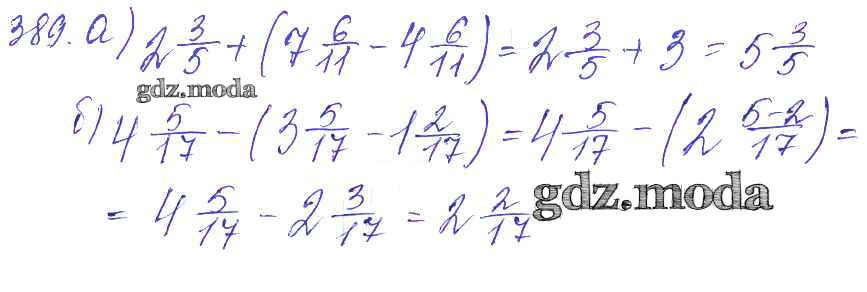 389. а) 2 3/5 + (7 6/11 - 4 6/11) = 2 3/5 + 3 = 5 3/5
gdz.moda
б) 4 5/17 - (3 5/17 - 1 2/17) = 4 5/17 - (2 5-2/17) =
= 4 5/17 - 2 3/17 = 2 2/17
gdz.moda